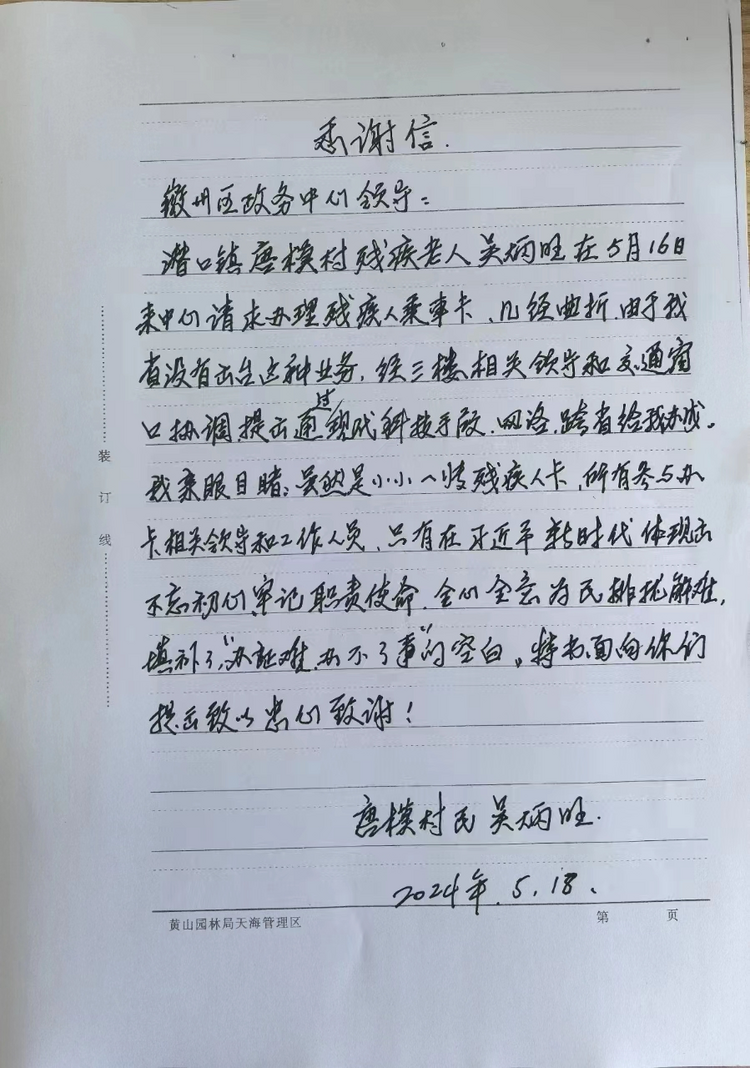 感谢信.
徽州区政务中心领导：
潜口镇唐模村残疾老人吴炳旺在5月16日
来中心请求办理残疾人乘车卡、几经曲折,由于我
省没有出台这种业务,经三楼相关领导和交通窗
口协调提出通过现代科技手段、网络,跨省给我办成。
我亲眼目睹;虽然是小小一张残疾人卡,所有参与办
卡相关领导和工作人员、只有在习近平新时代体现出
不忘初心,牢记职责使命,全心全意为民排忧解难,
填补了,"办证难,办不了事"的空白。特书面向你们
提出致以忠心致谢!
唐模村民吴炳旺.
2024年.5.18.
装订线
黄山园林局天海管理区 第 页